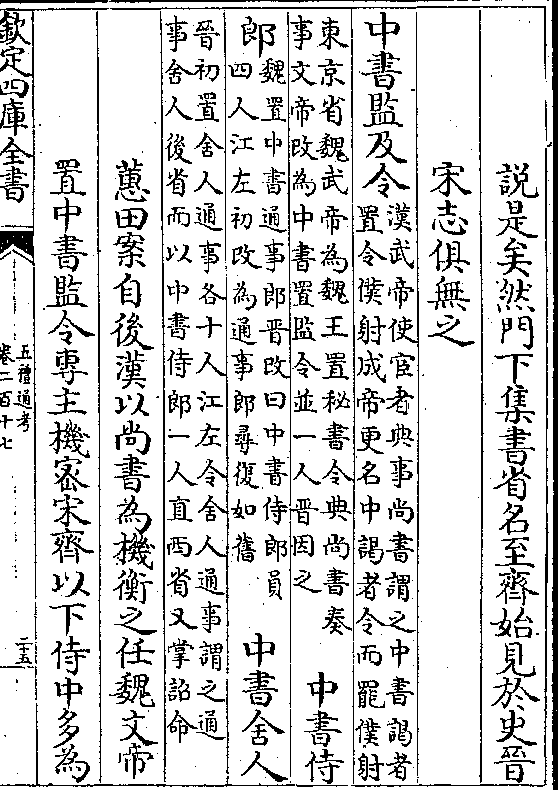 說是矣然門下集書省名至齊始見於史晉
宋志俱無之
中書監及令漢武帝使宦者典事尚書謂之中書謁者
置令僕射成帝更名中謁者令而罷僕射
東京省魏武帝為魏王置秘書令典尚書奏
事文帝改為中書置監令並一人晉因之
中書侍
郎魏置中書通事郎晉改曰中書侍郎員
四人江左初改為通事郎尋復如舊
中書舍人
晉初置舍人通事各十人江左令舍人通事謂之通
事舍人後省而以中書侍郎一人直西省又掌詔命
蕙田案自後漢以尚書為機衡之任魏文帝
置中書監令専主機宻宋齊以下侍中多為
欽定四庫全書
五禮通考
卷二百十七
二十五